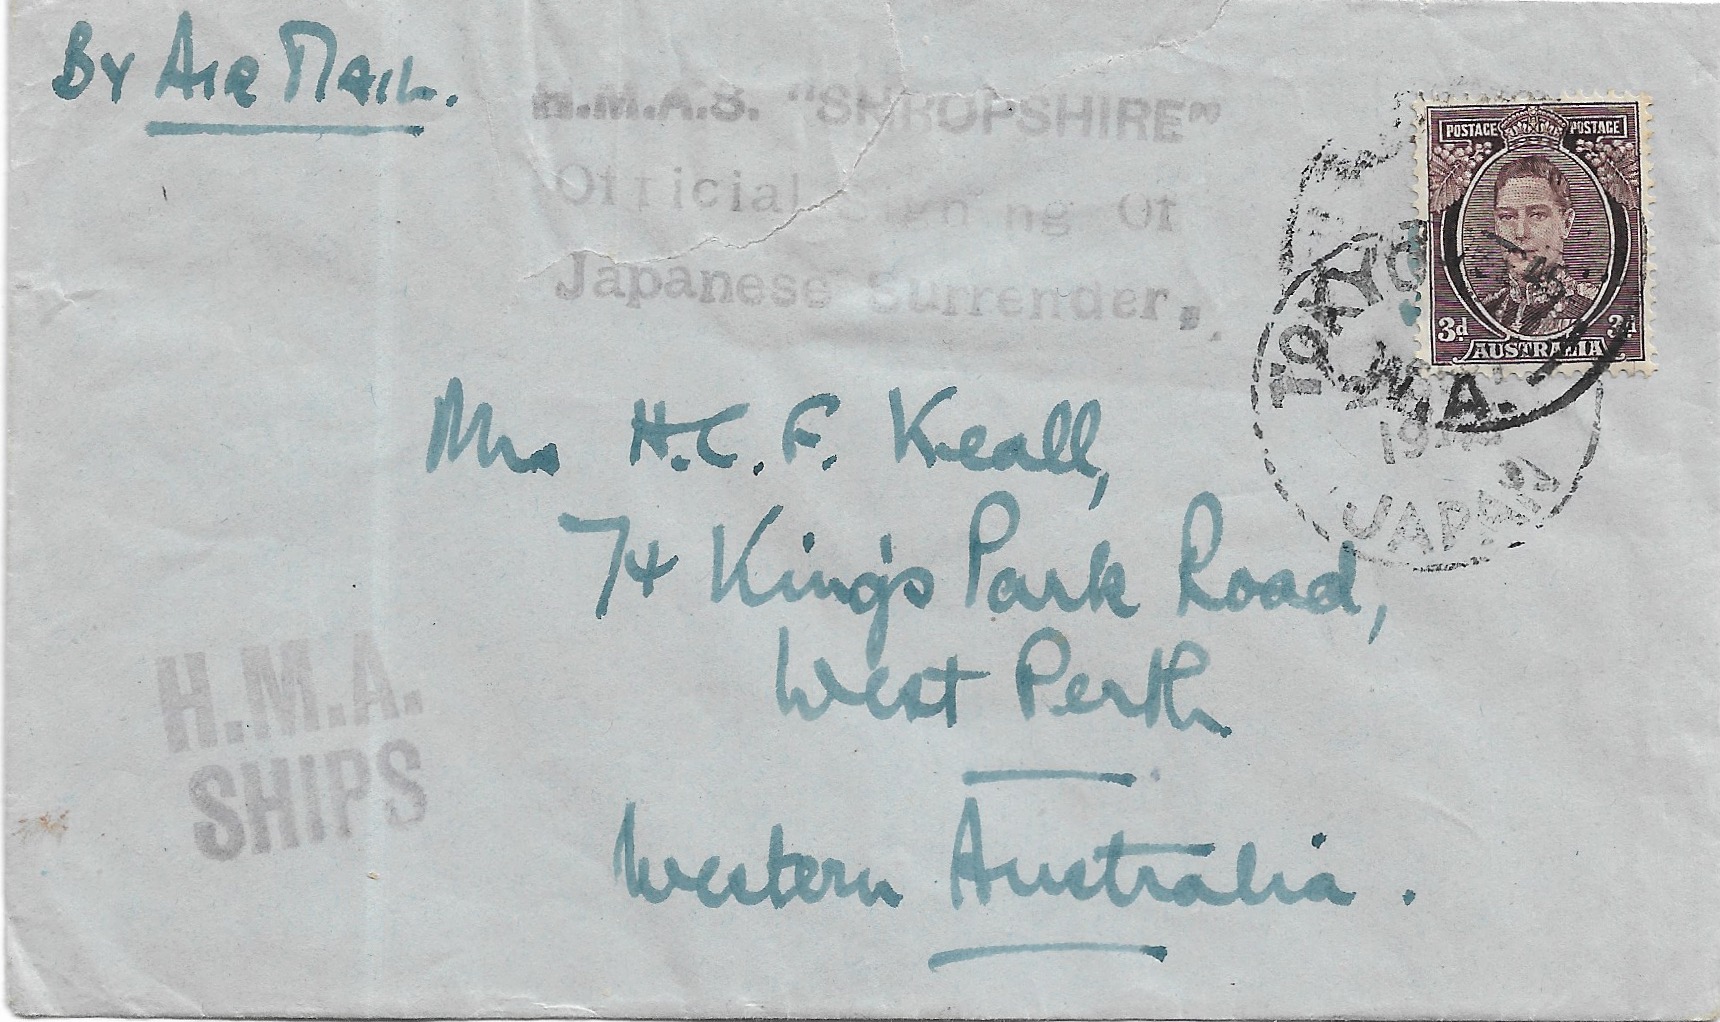 By Air Mail.
H.M.A.S. "SHROPSHIRE"
Official Signing Of
Japanese Surrender.
POSTAGE POSTAGE
3d 3d
AUSTRALIA
TOKYO
W.A.
JAPAN
Mrs H.C.F. Keall,
74 King's Park Road,
West Perth
Western Australia.
H.M.A.
SHIPS